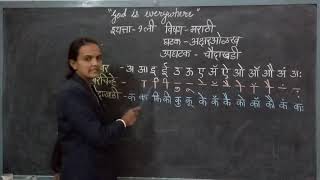 "God is everywhere"
इयत्ता - १ली विषय - मराठी
घटक - अक्षरओळख
उपघटक - चौदाखडी
स्वर - अ आ इ ई उ ऊ ए ॲ ऐ ओ ऑ औ अं अः
क का कि की कु कू के कॅ कै को कॉ कौ कं कः